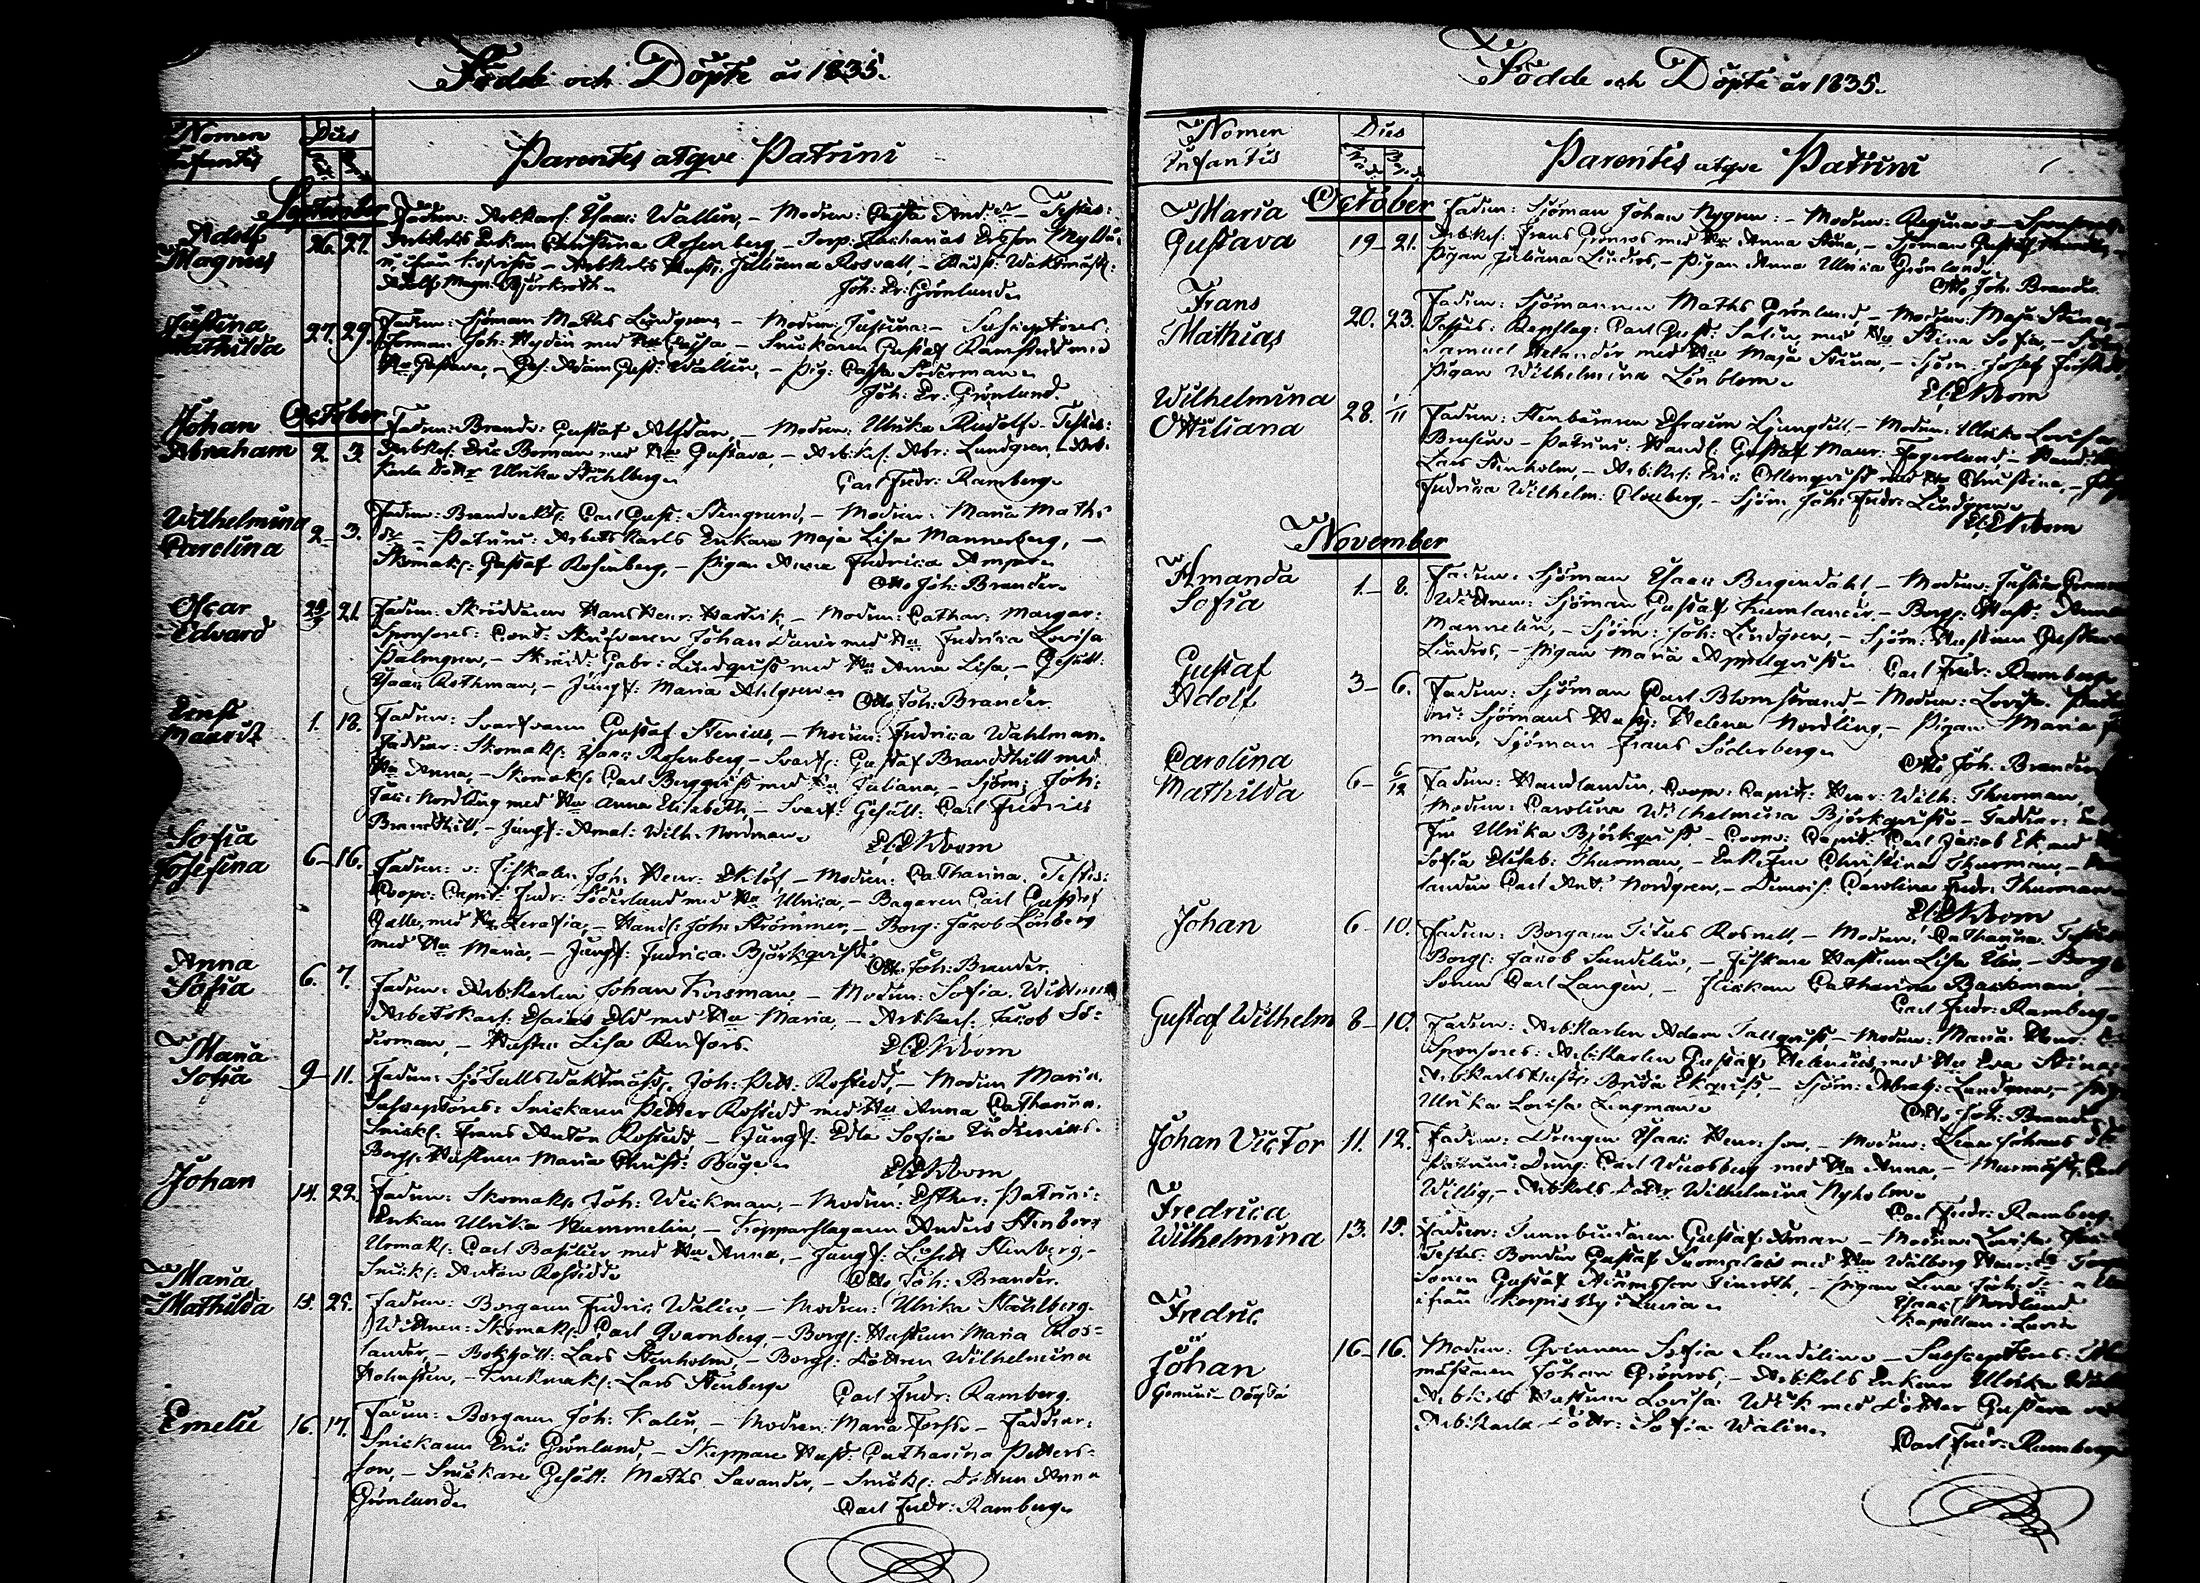 Födde och Döpte år 1835.
Nomen Infantis
Dies
Parentes atqve Patrini
September
Adolf Magnus
26. 27.
Fadren: Arbkarl: Isaac Wallin, – Modren: Cajsa And: dr – Testes:
Arbkarls Enkan Christina Rosenberg, – Torp: Zacharias Ersson
– Arbkarls Hust: Juliana Rosvall, – Waktmäst:
Adolf Magn: Björkroth.
Joh: Er: Grönlund.
Justina Mathilda
27. 29.
Fadren: Sjöman Maths Lundgren, – Modren: Justina, – Susceptores:
Joh: Hydén med Hu Cajsa – Snickaren Gustaf Ramstedt med
Hu Gustava, – Ges: Adam Gust: Wallin, – Pig: Cajsa Söderman.
Joh: Er: Grönlund.
October
Johan Abraham
2. 3.
Fadren: Brandv: Gustaf Alfstan, – Modren: Ulrika Rudolfs – Testes:
Arbkarl: Eric Boman med Hu Gustava, – Arb:karl: Abr: Lundgren, – Arb-
karls Dottr Ulrika Ståhlberg.
Carl Fredr: Ramberg.
Wilhelmina Carolina
2. 3.
Fadren: Brandvakts: Carl Gust: Stengrund, – Modren: Maria Maths
dr – Patrini: Arbetskarls Enkan Maja Lisa Mannerberg, –
Skomak: Gustaf Rosenberg, – Pigan Anna Fredrica
Otto Joh: Brander.
Oscar Edvard
21.
Fadren: Skräddaren Hans Henr: – Modren: Cathar: Margar:
Sponsores: Cont: Skrifvaren Johan Daner med Hu Fredrica Lovisa
Palmgren, – Skrädd: Gabr: Lindqvist med Hu Anna Lisa, – Gesäll:
Isaac Rothman, – Jungf: Maria Ahlgren.
Otto Joh: Brander.
Ernst Mauritz
1. 18.
Fadren: Svarfvaren Gustaf Stenius, – Modren: Fredrica Wahlman.
Faddrar: Skomak: Isaac Rosenberg, – Svarf: Gustaf Brandstätt med
Hu Anna, – Skomak: Carl Bergqvist med Hu Juliana, – Sjöm: Joh:
Nordling med Hu Anna Elisabeth, – Svarf: Gesäll: Carl Fredric
Brandstätt, – Jungf: Amal: Wilh: Nordman.
El: Ekbom
Sofia Josefina
6– 16.
Fadren: v: Fiskalen Joh: Henr: Eklöf, – Modren: Catharina. Testes:
Coopv: Capit: Fredr: Söderlund med Hu Ulrica, – Bagaren Carl Gustaf
Galle, med Hu Serafia, – Handl: Joh: Strömmer, – Borg: Jacob Lönberg
med Hu Maria, – Jungf: Fredrica Björkqvist.
Otto Joh: Brander.
Anna Sofia
6. 7.
Fadren: Arbkarlen Johan Korsman, – Modren: Sofia. Wittnen
Arbetskarl: Esaias Eld med Hu Maria, – Arbkarl: Jacob Sö-
derman, – Hustru Lisa Renfors.
El: Ekbom
Maria Sofia
9– 11.
Fadren: SjöTullsWaktmäst: Joh: Pett: Rostedt, – Modren Maria.
Susceptores: Snickaren Petter Rostedt med Hu Anna Catharina.
Snick: Frans Anton Rostedt – Jungf: Edla Sofia
Borg: Hustrun Maria Christ: Boge.
El: Ekbom
Johan
14. 22.
Fadren: Skomak: Joh: Weckman, – Modren: Esther: Patrini:
Enkan Ulrika Hummelin, – Kopparslagaren Anders Stenberg
Urmak: Carl Basilier med Hu Anna, – Jungf: Lisett Stenberg –
Snick: Anton Rostedt.
Otto Joh: Brander.
Maria Mathilda
15. 25.
Fadren: Borgaren Fredric Walin, – Modren: Ulrika Ståhlberg.
Wittnen: Skomak: Carl Qvarnberg, – Borg: Hustrun Maria Ros-
lander, – Bokhåll: Lars Stenholm, – Borg: Dottren Wilhelmina
Holmsten, – Lars Stenberg.
Carl Fredr: Ramberg.
Emelie
16. 17.
Fadren: Borgaren Joh: Kalen, – Modren: Maria Forss – Faddrar:
Snickaren Eric Grönlund, – Skeppare Hust: Catharina Petters-
son, – Snickare Gesäll: Maths Savander, – Snick: Dottren Anna
Grönlund.
Carl Fredr: Ramberg.
Födde och Döpte år 1835.
Nomen Infantis
Dies
Parentes atqve Patrini
October
Maria Gustava
19– 21.
Fadren: Sjöman Johan Nygren: – Modren: Regina – Sponsores
Arb:karl: Frans Grönros med Hu Anna Stina, – Sjöman Gustaf
Pigan Juliana Lindros, – Pigan Anna Ulrica Grönlund.
Otto Joh: Brander.
Frans Mathias
20. 23.
Fadren: Sjömannen Maths Grönlund, – Modren: Maja Stina, –
Testes: Repslag: Carl Gust: Salin, med Hu Stina Sofia, –
Samuel Helander med Hu Maja Stina, – Sjöm: Josef
Pigan Wilhelmina Lönblom.
El: Ekbom
Wilhelmina Ottiliana
28. 1/11
Fadren: Stenbäraren Efraim Ljungdell, – Modren: Ulrika Lovisa
– Patrini: Handl: Gustaf Maur: Fagerlund, – Hand:
Lars Stenholm, – Arb:karl: Eric Ollonqvist med Hu Christina, –
Fredrica Wilhelm: Cloeberg, – Sjöm: Joh: Fredr: Lindgren.
El: Ekbom
November
Amanda Sofia
1.– 8.
Fadren: Sjöman Isaac Bergendahl, – Modren: Justina
Wittnen: Sjöman Gustaf Kumlander, – Borg: Hust: Anna
Mannelin, – Sjöm: Joh: Lindgren, – Sjöm: Hustrun Gustava
Lindros, – Pigan Maria Appelqvist.
Carl Fredr: Ramberg.
Gustaf Adolf
3– 6.
Fadren: Sjöman Carl Blomstrand, – Modren: Lovisa. Patri-
ni: Sjömans Hust: Helena Nordling, – Pigan Maria
man, Sjöman Frans Söderberg.
Otto Joh: Brander
Carolina Mathilda
6– 6/12
Fadren: Handlanden, Coopv: Capit: Henr: Wilh: Thurman,
Modren: Carolina Wilhelmina Björkqvist – Faddrar:
Fru Ulrika Björkqvist, – Coopv: Capit: Carl Jacob Ek med
Sofia Elisab: Thurman, – Enkefru Christina Thurman, –
landen Carl Ant: Nordgren, – Demois: Carolina Fredr: Thurman
El: Ekbom
Johan
6– 10.
Fadren: Borgaren Titus Rosnell, – Modren: Catharina. Testes
Borg: Jacob Sundelin, – Fiskare Hustrun Lisa – Borg
Sonen Carl Langén, – Flickan Catharina Backman –
Carl Fredr: Ramberg.
Gustaf Wilhelm
8– 10.
Fadren: Arb:karlen Adam Tallqvist, – Modren: Maria Henr:
Sponsores: Arb:karlen Gustaf Helenius, med Hu Eva Stina,
Arbkarls Hust: Brita Ekqvist, – Sjöm: Abrah: Lundgren, –
Ulrika Lovisa Lingman.
Otto Joh: Brander
Johan Victor
11. 12.
Fadren: Drengen Isaac Henr: son, – Modren: Lena Johans dr
Patrini: Dreng: Carl Wicosberg med Hu Anna, – Murmäst: Carl
Willig, – Arbkarls Dottr Wilhelmina Nyholm.
Carl Fredr: Ramberg.
Fredrica Wilhelmina
13. 15.
Fadren: Tunnbindaren Gustaf Aman – Modren Lovisa
Testes: Bonden Gustaf med Hu Walborg Henr: dr
sonen Gustaf Adamsson Finroth, – Pigan Lena Joh: dr
ifrån by i Luvia.
Isaac Nordlund
Kapellan i Luvia
Fredric Johan
Gemini – Oägta
16– 16.
Modren: Qvinnan Sofia Sundelin – Susceptores:
mästaren Johan Grönros, – Arbkarls Enkan Ulrika
Arbkarls Hustrun Lovisa Wik med Dotter Gustava
Arb:karls Dottr: Sofia Walin.
Carl Fredr: Ramberg